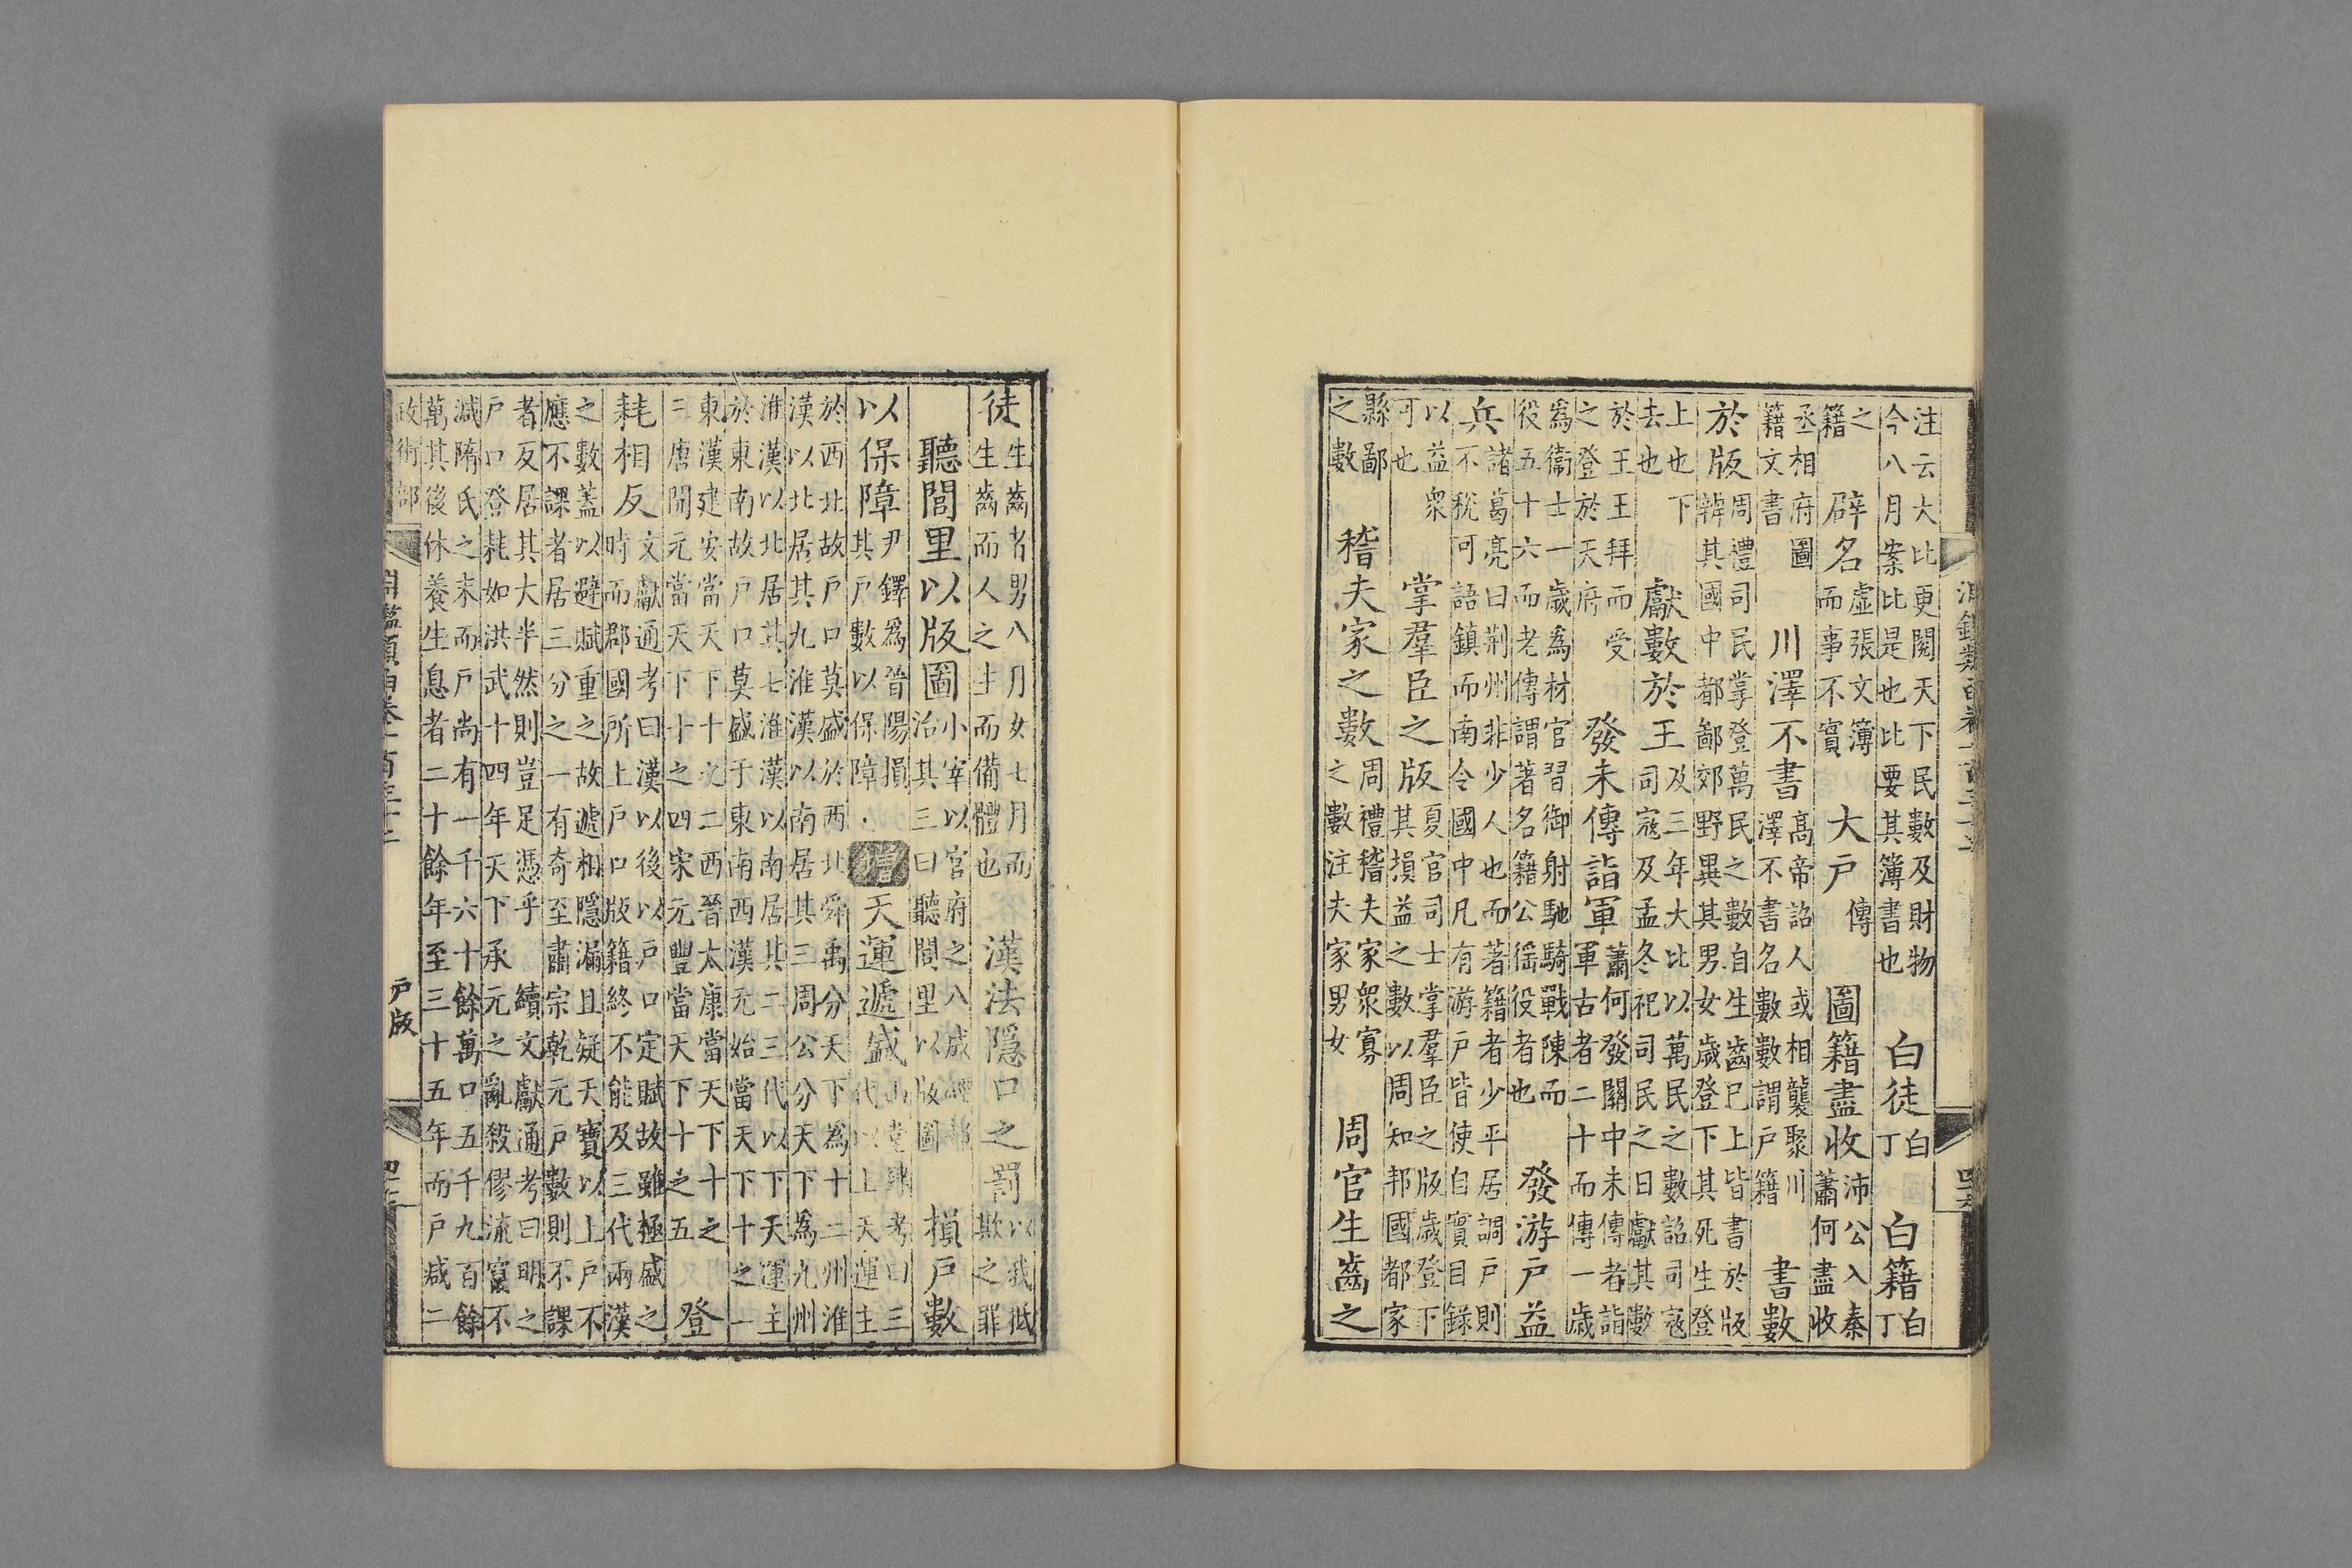 注云大比更閱天下民數及財物
今八月案比是也比要其簿書也
白徒
白
丁
白籍
白
丁
之
籍
辟名
虛張文簿
而事不實
大戶
傳
圖籍盡收
沛公入秦
蕭何盡收
丞相府圖
籍文書
川澤不書
高帝詔人或相襲聚川
澤不書名數數謂戶籍
書數
於版
周禮司民掌登萬民之數自生齒已上皆書於版
辨其國中都鄙郊野異其男女歲登下其死生登
上也下
去也
獻數於王
及三年大比以萬民之數詔司寇
司寇及孟冬祀司民之日獻其數
於王王拜而受
之登於天府
發未傳詣軍
蕭何發關中未傳者詣
軍古者二十而傳一歲
為衞士一歲為材官習御射馳騎戰陳而
役五十六而老傳謂著名籍公徭役者也
發游戶益
兵
諸葛亮曰荊州非少人也而著籍者少平居調戶則
不悅可語鎮而南令國中凡有游戶皆使自實目錄
以益衆
可也
掌羣臣之版
夏官司士掌羣臣之版歲登下
其損益之數以周知邦國都家
縣鄙
之數
稽夫家之數
周禮稽夫家衆寡
之數注夫家男女
周官生齒之
徒
生齒者男八月女七月而
生齒而人之生而備體也
漢法隱口之罰
以我抵
欺之罪
聽閭里以版圖
小宰以官府之八成經邦
治其三曰聽閭里以版圖
損戶數
以保障
尹鐸為晉陽損
其戶數以保障
增
天運遞盛
山堂肆考曰三
代以上天運主
於西北故戶口莫盛於西北舜禹分天下為十二州淮
漢以北居其九淮漢以南居其三周公分天下為九州
淮漢以北居其七淮漢以南居其二三代以下天運主
於東南故戶口莫盛于東南西漢元始當天下十之一
東漢建安當天下十之二西晉太康當天下十之
三唐開元當天下十之四宋元豐當天下十之五
登
耗相反
文獻通考曰漢以後以戶口定賦故雖極盛之
時而郡國所上戶口版籍終不能及三代兩漢
之數蓋以避賦重之故遞相隱漏且疑天寶以上戶不
應不課者居三分之一有奇至肅宗乾元戶數則不課
者反居其大半然則豈足憑乎
續文獻通考曰明之
戶口登耗如洪武十四年天下承元之亂殺僇流竄不
減隋氏之末而戶尚有一千六十餘萬口五千九百餘
萬其後休養生息者二十餘年至三十五年而戶減二
政術部
戶版